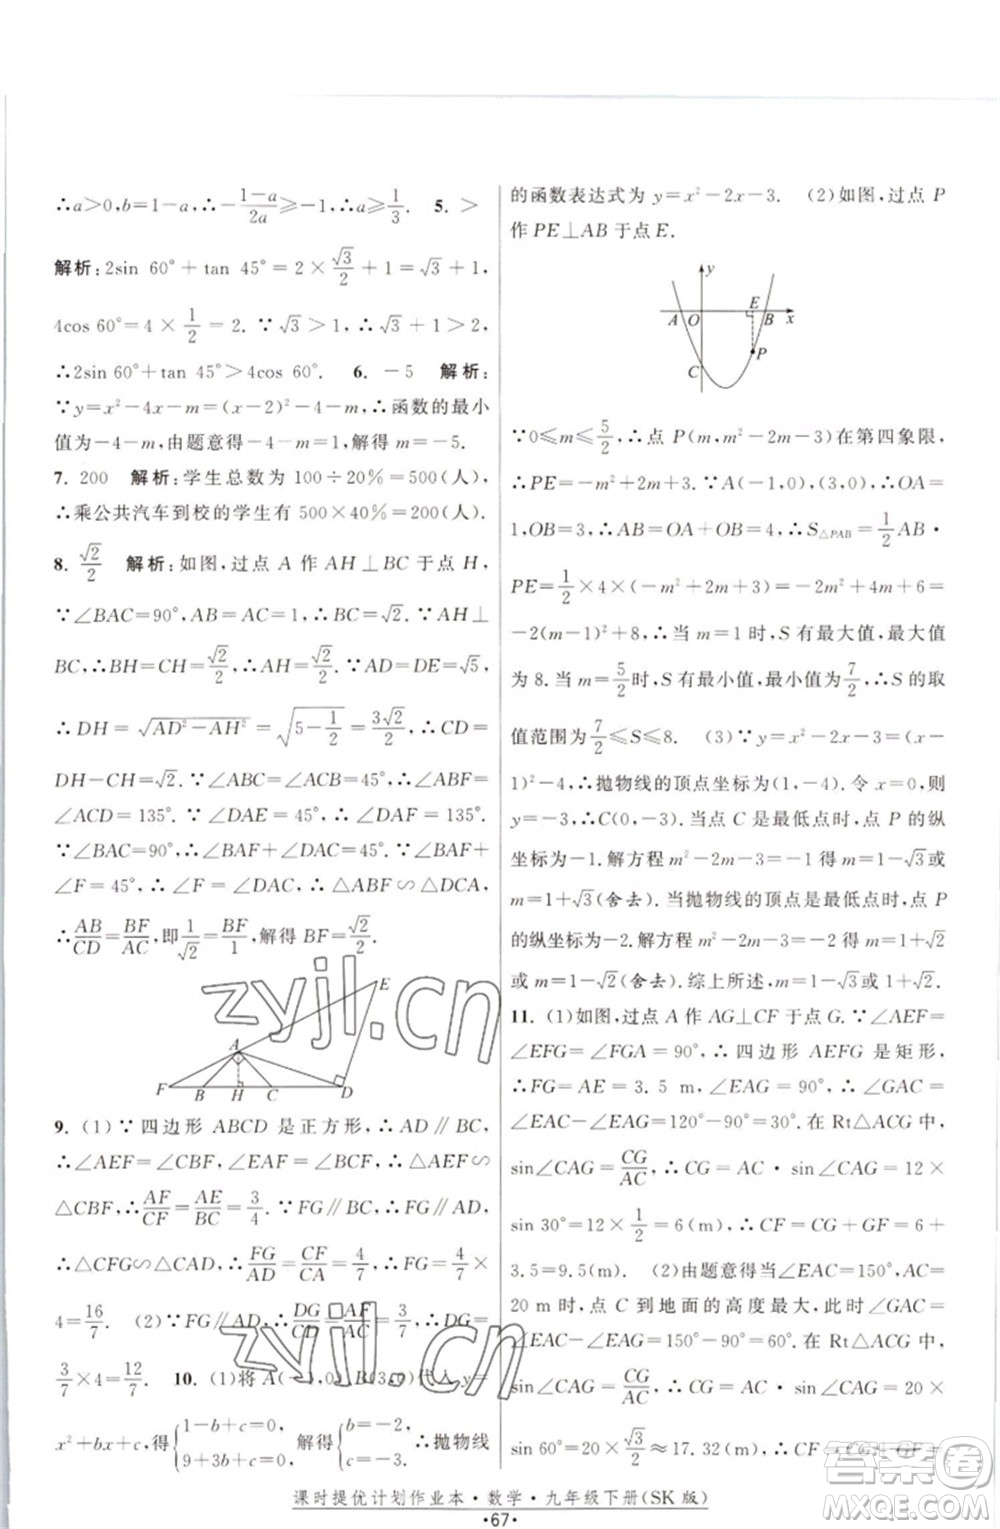 ∴a>0,b=1-a,∴-\frac{1-a}{2a}≥-1,∴a≥\frac{1}{3}. 5. >
解析:2sin 60°+tan 45°=2×\frac{√3}{2}+1=√3+1,
4cos 60°=4×\frac{1}{2}=2.∵√3>1,∴√3+1>2,
∴2sin 60°+tan 45°>4cos 60°. 6. -5 解析:
∵y=x²-4x-m=(x-2)²-4-m,∴函数的最小
值为-4-m,由题意得-4-m=1,解得m=-5.
7. 200 解析:学生总数为100÷20%=500(人),
∴乘公共汽车到校的学生有500×40%=200(人).
8. \frac{√2}{2} 解析:如图,过点A作AH⊥BC于点H,
∵∠BAC=90°,AB=AC=1,∴BC=√2.∵AH⊥
BC,∴BH=CH=\frac{√2}{2}.∵AD=DE=√5,
∴DH=√(AD²-AH²)=√(5-\frac{1}{2})=\frac{3√2}{2},∴CD=
DH-CH=√2.∵∠ABC=∠ACB=45°,∴∠ABF=
∠ACD=135°.∵∠DAE=45°,∴∠BAF+∠DAC=45°.
∵∠BAC=90°,∴∠BAF+∠DAC=45°.∵∠BAF+
∠F=45°,∴∠F=∠DAC,∴△ABF∽△DCA,
∴\frac{AB}{CD}=\frac{BF}{AC},即\frac{1}{√2}=\frac{BF}{1},解得BF=\frac{√2}{2}.
E
A
F B H C D
9. (1)∵四边形ABCD是正方形,∴AD∥BC,
∴∠AEF=∠CBF,∠EAF=∠BCF,∴△AEF∽
△CBF,∴\frac{AF}{CF}=\frac{AE}{BC}=\frac{3}{4}.∵FG∥BC,∴FG∥AD,
∴△CFG∽△CAD,∴\frac{FG}{AD}=\frac{CF}{CA}=\frac{4}{7},∴FG=\frac{4}{7}×
4=\frac{16}{7}. (2)∵FG∥AD,∴\frac{DG}{CD}=\frac{AF}{AC}=\frac{3}{7},∴DG=
\frac{3}{7}×4=\frac{12}{7}. 10. (1)将A(-1,0),B(3,0)代入y=
x²+bx+c,得{1-b+c=0, 9+3b+c=0, 解得{b=-2, c=-3, ∴抛物线
的函数表达式为y=x²-2x-3. (2)如图,过点P
作PE⊥AB于点E.
y
E
A O B x
P
C
∵0≤m≤\frac{5}{2},∴点P(m,m²-2m-3)在第四象限,
∴PE=-m²+2m+3.∵A(-1,0),(3,0),∴OA=
1,OB=3,∴AB=OA+OB=4,∴S△PAB=\frac{1}{2}AB·
PE=\frac{1}{2}×4×(-m²+2m+3)=-2m²+4m+6=
-2(m-1)²+8,∴当m=1时,S有最大值,最大值
为8.当m=\frac{5}{2}时,S有最小值,最小值为\frac{7}{2},∴S的取
值范围为\frac{7}{2}≤S≤8. (3)∵y=x²-2x-3=(x-
1)²-4,∴抛物线的顶点坐标为(1,-4).令x=0,
y=-3,∴C(0,-3).当点C是最低点时,点P的纵
坐标为-1.解方程m²-2m-3=-1得m=1-√3或
m=1+√3(舍去).当抛物线的顶点是最低点时,点P
的纵坐标为-2.解方程m²-2m-3=-2得m=1+√2
或m=1-√2(舍去).综上所述,m=1-√3或m=1+√2.
11. (1)如图,过点A作AG⊥CF于点G.∵∠AEF=
∠EFG=∠FGA=90°,∴四边形AEFG是矩形,
∴FG=AE=3.5 m,∠EAG=90°,∴∠GAC=
∠EAC-∠EAG=120°-90°=30°.在Rt△ACG中,
sin∠CAG=\frac{CG}{AC},∴CG=AC·sin∠CAG=12×
sin 30°=12×\frac{1}{2}=6(m),∴CF=CG+GF=6+
3.5=9.5(m). (2)由题意得当∠EAC=150°,AC=
20 m时,点C到地面的高度最大,此时∠GAC=
∠EAC-∠EAG=150°-90°=60°.在Rt△ACG中,
sin∠CAG=\frac{CG}{AC},∴CG=AC·sin∠CAG=20×
sin 60°=20×\frac{√3}{2}≈17.32(m),∴CF=CG+GF=
课时提优计划作业本·数学·九年级下册(SK版)
·67·
zyjl.cn
zyjl.cn
答案圈
MXQE.COM